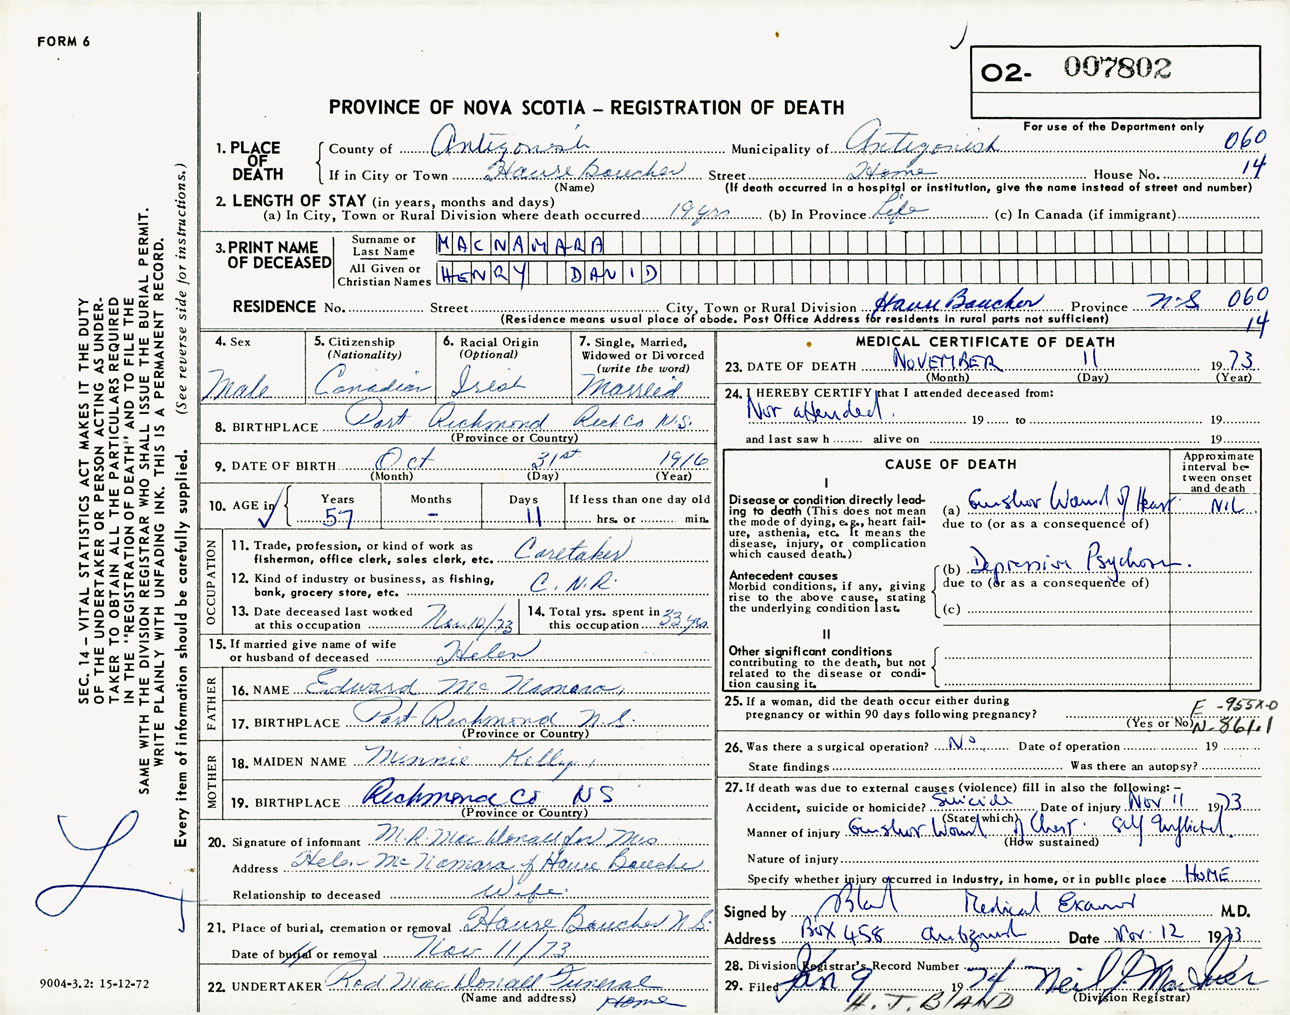 FORM 6
O2- 007802
For use of the Department only
PROVINCE OF NOVA SCOTIA – REGISTRATION OF DEATH
1. PLACE OF DEATH
County of Antigonish Municipality of Antigonish 060
If in City or Town Havre Boucher Street Home House No. 14
(Name) (If death occurred in a hospital or institution, give the name instead of street and number)
2. LENGTH OF STAY (in years, months and days)
(a) In City, Town or Rural Division where death occurred 19 yrs (b) In Province Life (c) In Canada (if immigrant)
3. PRINT NAME OF DECEASED
Surname or Last Name MACNAMARA
All Given or Christian Names HENRY DAVID
RESIDENCE No. Street City, Town or Rural Division Havre Boucher Province N.S 060
(Residence means usual place of abode. Post Office Address for residents in rural parts not sufficient) 14
4. Sex
Male
5. Citizenship
(Nationality)
Canadian
6. Racial Origin
(Optional)
Irish
7. Single, Married,
Widowed or Divorced
(write the word)
Married
8. BIRTHPLACE Port Richmond Rich Co N.S.
(Province or Country)
9. DATE OF BIRTH Oct 31st 1916
(Month) (Day) (Year)
10. AGE in
Years Months Days If less than one day old
57 – 11 hrs. or min.
OCCUPATION
11. Trade, profession, or kind of work as
fisherman, office clerk, sales clerk, etc. Caretaker
12. Kind of industry or business, as fishing,
bank, grocery store, etc. C.N.R.
13. Date deceased last worked
at this occupation Nov 10/73
14. Total yrs. spent in
this occupation 33 yrs
15. If married give name of wife
or husband of deceased Helen
FATHER
16. NAME Edward McNamara
17. BIRTHPLACE Port Richmond N.S.
(Province or Country)
MOTHER
18. MAIDEN NAME Minnie Kelly
19. BIRTHPLACE Richmond Co NS
(Province or Country)
20. Signature of informant M.R. MacDonald for Mrs
Address Helen McNamara of Havre Boucher
Relationship to deceased Wife
21. Place of burial, cremation or removal Havre Boucher N.S.
Date of burial or removal Nov 11/73
22. UNDERTAKER Rod MacDonald Funeral
(Name and address) Home
MEDICAL CERTIFICATE OF DEATH
23. DATE OF DEATH NOVEMBER 11 1973
(Month) (Day) (Year)
24. I HEREBY CERTIFY that I attended deceased from:
Not attended. 19 to 19
and last saw h alive on 19
CAUSE OF DEATH
Approximate interval between onset and death
I
Disease or condition directly leading to death (This does not mean the mode of dying, e.g., heart failure, asthenia, etc. It means the disease, injury, or complication which caused death.)
(a) Gunshot Wound of Heart NIL
due to (or as a consequence of)
Antecedent causes
Morbid conditions, if any, giving rise to the above cause, stating the underlying condition last.
(b) Depressive Psychosis.
due to (or as a consequence of)
(c)
II
Other significant conditions
contributing to the death, but not related to the disease or condition causing it.
25. If a woman, did the death occur either during
pregnancy or within 90 days following pregnancy?
(Yes or No)
E-955X-0
N-861.1
26. Was there a surgical operation? No Date of operation 19
State findings Was there an autopsy?
27. If death was due to external causes (violence) fill in also the following: –
Accident, suicide or homicide? Suicide Date of injury Nov 11 1973
(State which)
Manner of injury Gunshot Wound of Chest. Self Inflicted.
(How sustained)
Nature of injury
Specify whether injury occurred in Industry, in home, or in public place HOME
Signed by Bland Medical Examiner M.D.
Address Box 458 Antigonish Date Nov. 12 1973
28. Division Registrar's Record Number
29. Filed Jan 9 1974 Neil J. MacIver
(Division Registrar)
H. J. BLAND
SEC. 14 – VITAL STATISTICS ACT MAKES IT THE DUTY
OF THE UNDERTAKER OR PERSON ACTING AS UNDER-
TAKER TO OBTAIN ALL THE PARTICULARS REQUIRED
IN THE "REGISTRATION OF DEATH" AND TO FILE THE
SAME WITH THE DIVISION REGISTRAR WHO SHALL ISSUE THE BURIAL PERMIT.
WRITE PLAINLY WITH UNFADING INK. THIS IS A PERMANENT RECORD.
Every item of information should be carefully supplied. (See reverse side for instructions.)
9004-3.2: 15-12-72